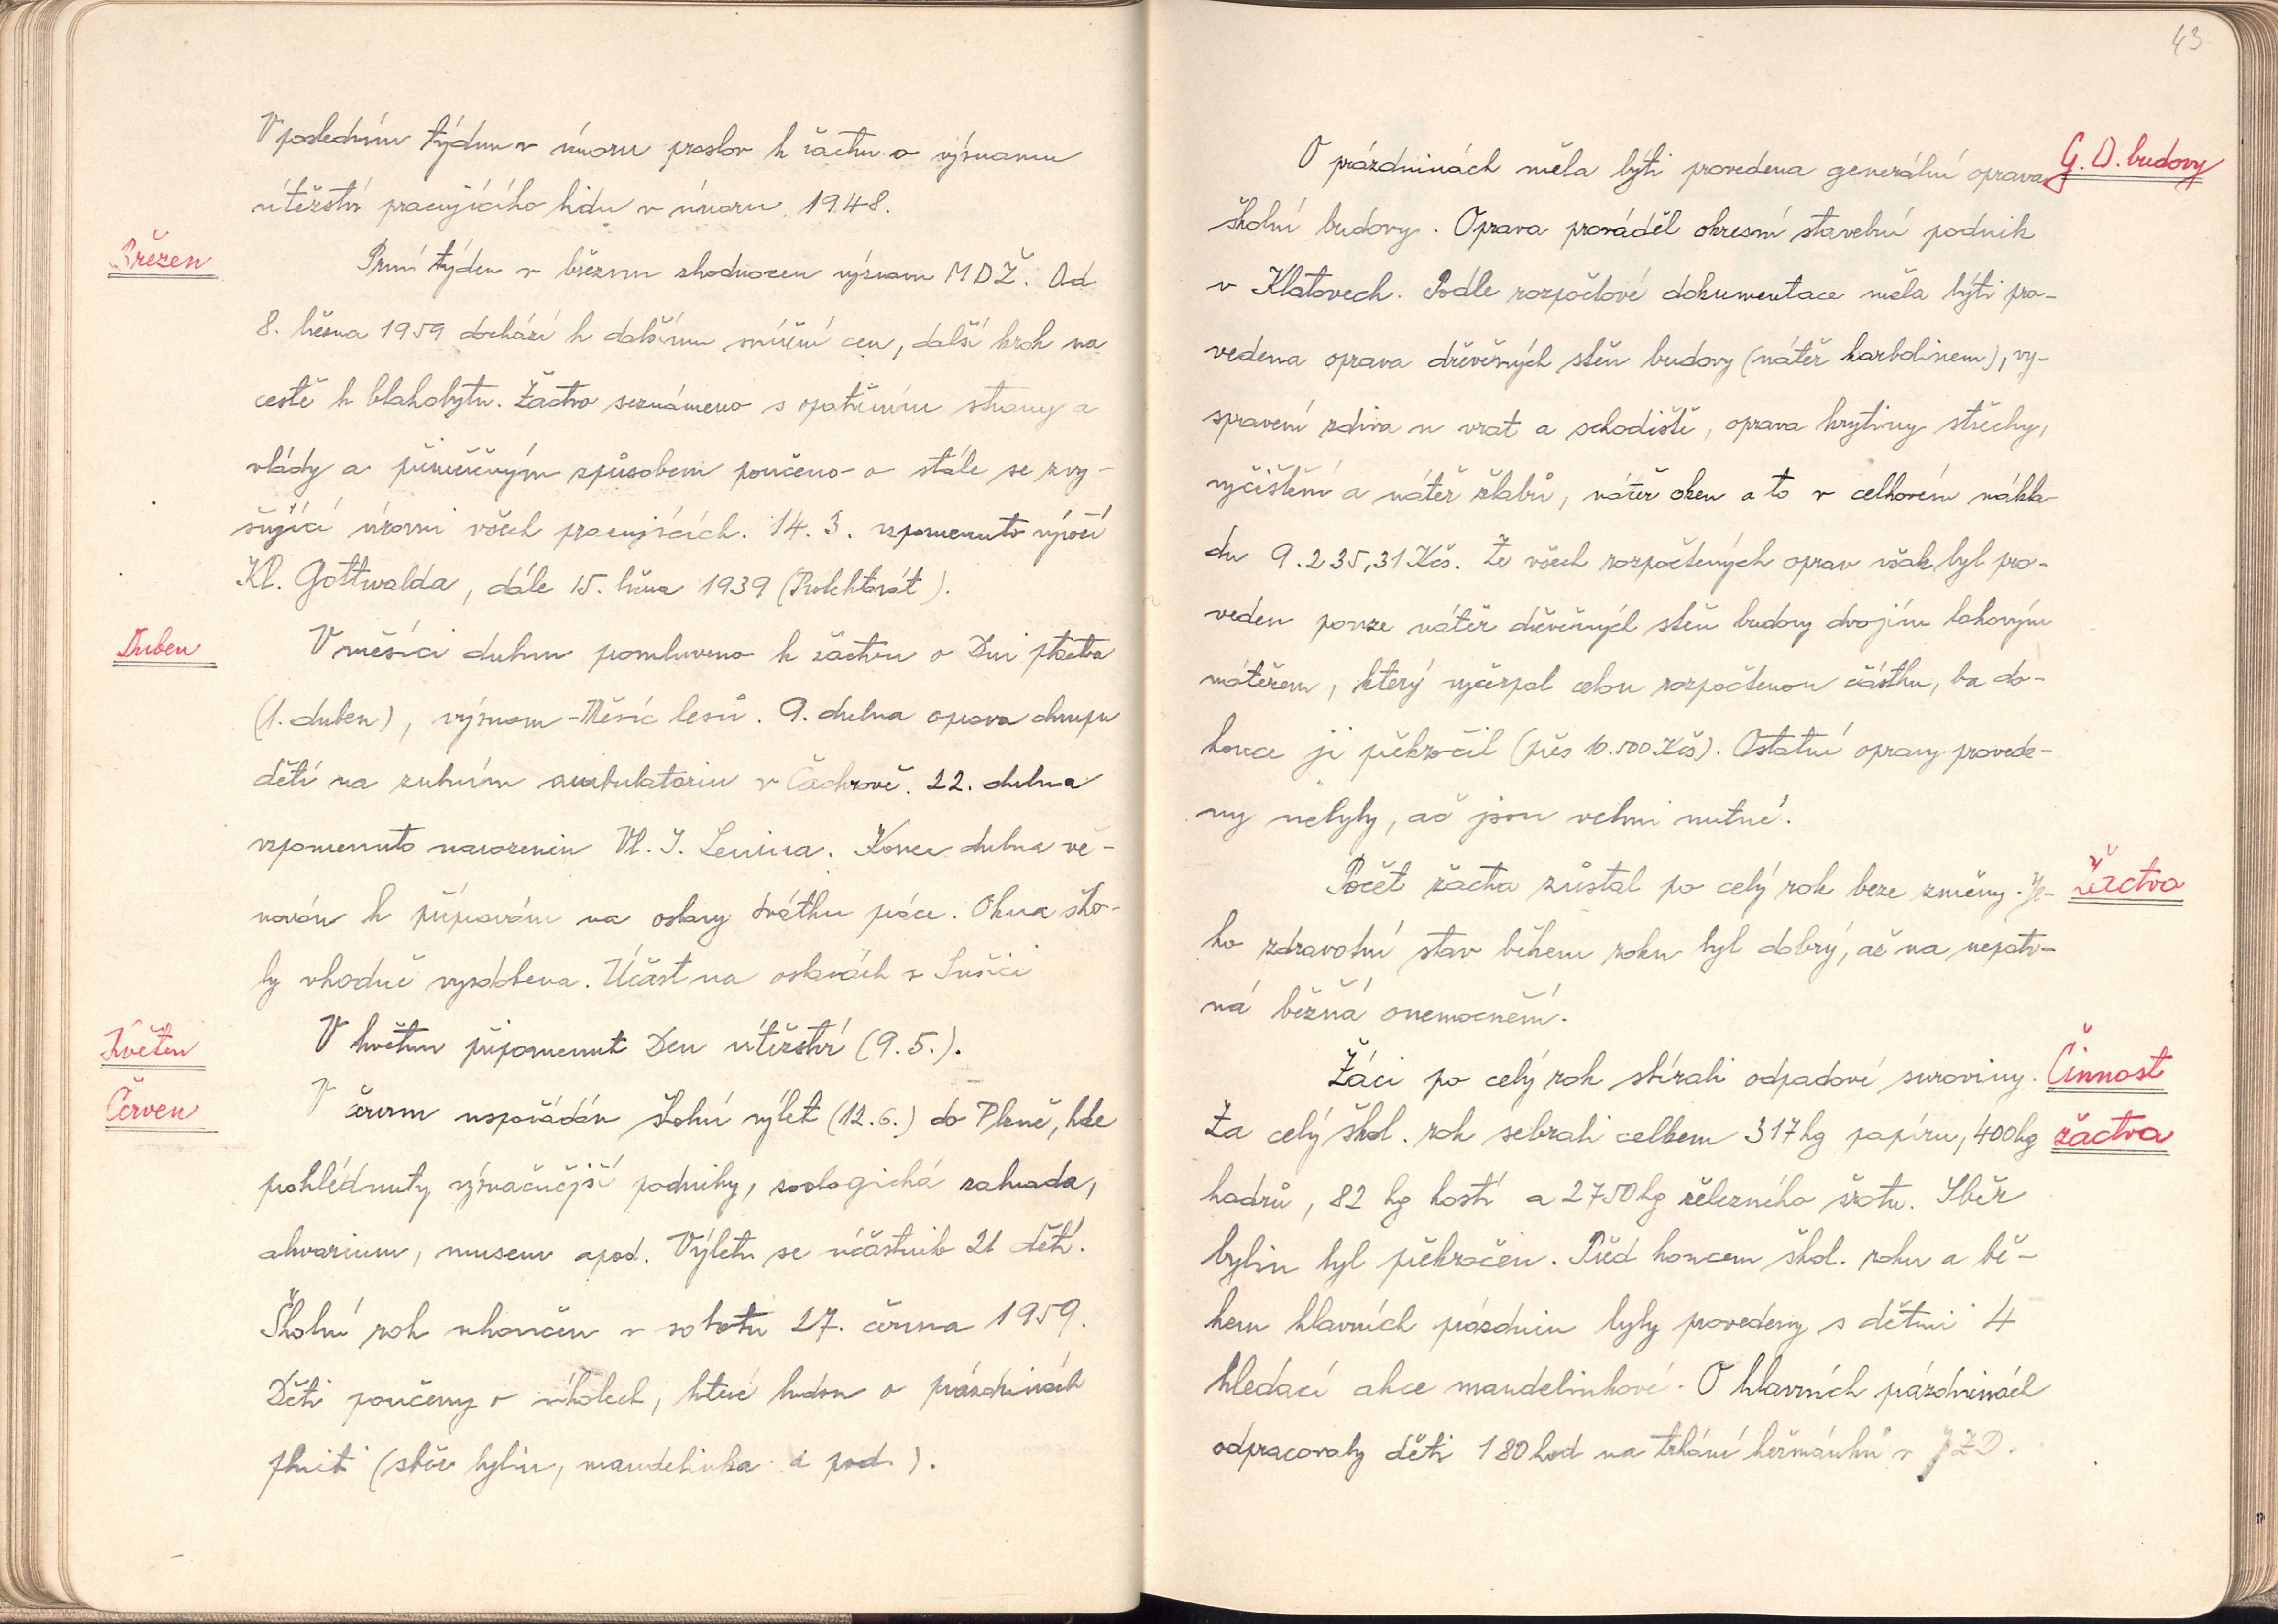 V posledním týdnu v únoru proslov k žactvu o významu
vítězství pracujícího lidu v únoru 1948.
Březen
První týden v březnu zhodnocen význam MDŽ. Od
8. března 1959 dochází k dalšímu snížení cen, další krok na
cestě k blahobytu. Žactvo seznámeno s opatřením strany a
vlády a přiměřeným způsobem poučeno o stále se zvy-
šující úrovni všech pracujících. 14. 3. vzpomenuto výročí
Kl. Gottwalda, dále 15. břzna 1939 (Protektorát).
Duben
V měsíci dubnu promluveno k žactvu o Dni ptactva
(1. duben), význam - Měsíc lesů. 9. dubna oprava chrupu
dětí na zubním ambulatoriu v Čachrově. 22. dubna
vzpomenuto narozenin Vl. I. Lenina. Konec dubna vě-
nován k přípravám na oslavy svátku práce. Okna ško-
ly vhodně vyzdobena. Účast na oslavách v Sušici
Květen
V květnu připomenut Den vítězství (9. 5.).
Červen
V červnu uspořádán školní výlet (12. 6.) do Plzně, kde
prohlédnuty význačnější podniky, zoologická zahrada,
akvarium, museum apod. Výletu se účastnilo 21 dětí.
Školní rok ukončen v sobotu 27. června 1959.
Děti poučeny o úkolech, které budou o prázdninách
plniti (sběr bylin, mandelinka a pod.).
43
O prázdninách měla býti provedena generální oprava
G. O. budovy
školní budovy. Oprava prováděl okresní stavební podnik
v Klatovech. Podle rozpočtové dokumentace měla býti pro-
vedena oprava dřevěných stěn budovy (nátěr karbolinem), vy-
spravení zdiva u vrat a schodiště, oprava krytiny střechy,
vyčištění a nátěr žlabů, nátěr oken a to v celkovém nákla-
du 9.235,31 Kčs. Ze všech rozpočtených oprav však byl pro-
veden pouze nátěr dřevěných stěn budovy dvojím lakovým
nátěrem, který vyčerpal celou rozpočtenou částku, ba do-
konce ji překročil (přes 10.500 Kčs). Ostatní opravy provede-
ny nebyly, ač jsou velmi nutné.
Počet žactva zůstal po celý rok beze změny. Je-
Žactvo
ho zdravotní stav během roku byl dobrý, až na nepatr-
ná běžná onemocnění.
Žáci po celý rok sbírali odpadové suroviny.
Činnost
Za celý škol. rok sebrali celkem 317 kg papíru, 400 kg
žactva
hadrů, 82 kg kostí a 2750 kg železného šrotu. Sběr
bylin byl překročen. Před koncem škol. roku a bě-
hem hlavních prázdnin byly provedeny s dětmi 4
hledací akce mandelinkové. O hlavních prázdninách
odpracovaly děti 180 hod na trhání heřmánku v JZD.